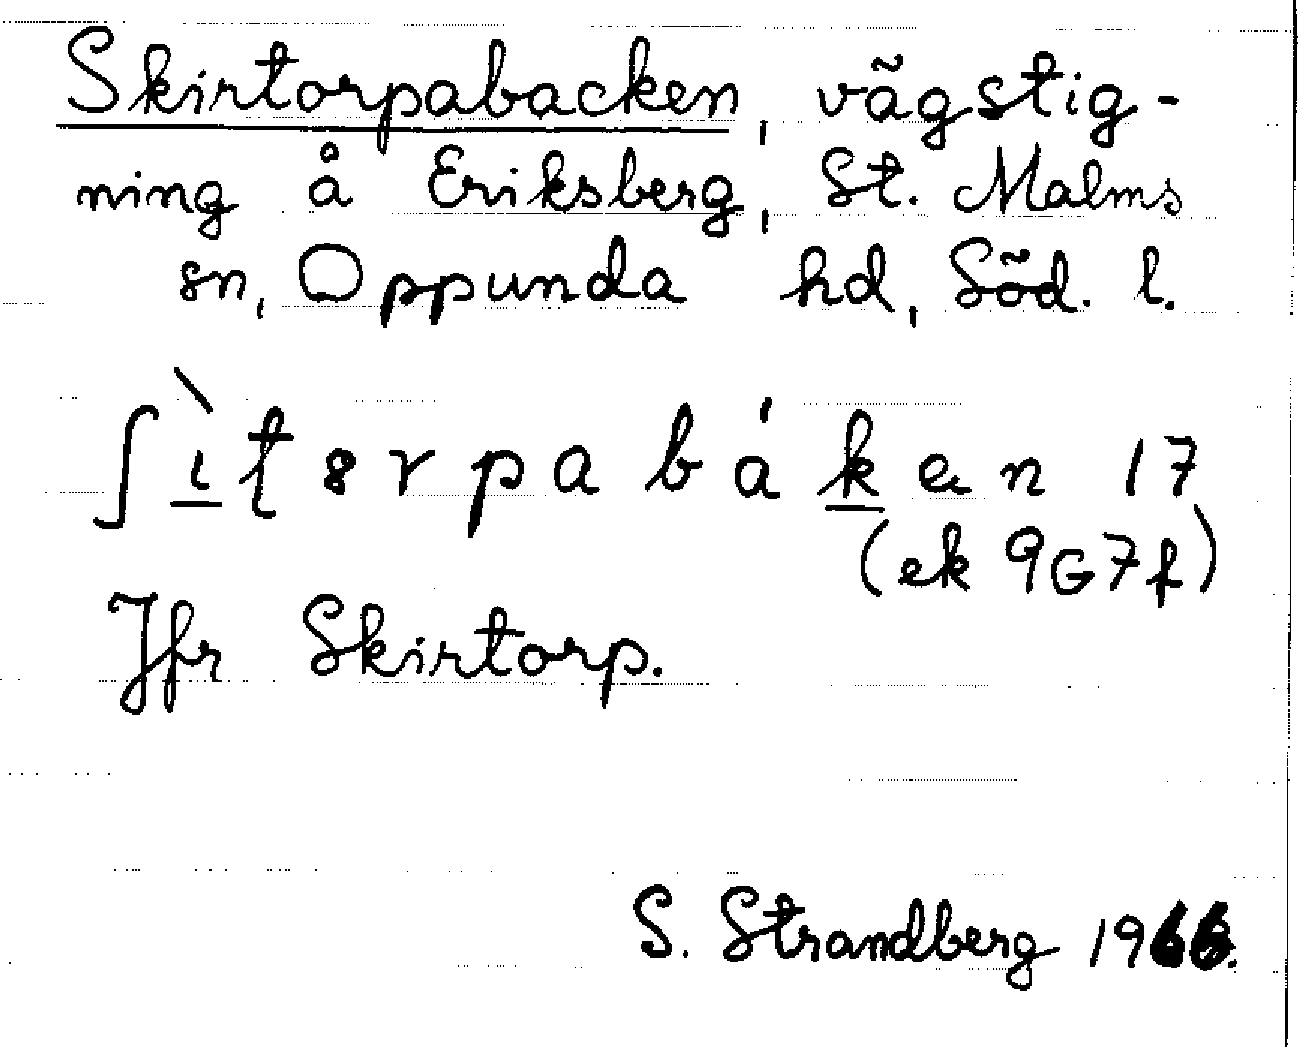 Skirtorpabacken, vägstig-
ning å Eriksberg, St. Malms
sn, Oppunda hd, Söd. l.
ʃì̱t8rpabák̲en 17
(ek 9G7f)
Jfr Skirtorp.
S. Strandberg 1966.